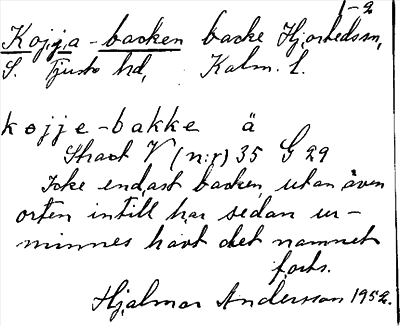 1-2
Kojja-backen backe Hjorteds sn,
S. Tjusts hd, Kalm. l.
kojje-bakke ä
Strax V (n:r) 35 G 29
Icke endast backen, utan även
orten intill har sedan ur-
minnes havt det namnet
forts.
Hjalmar Andersson 1952.